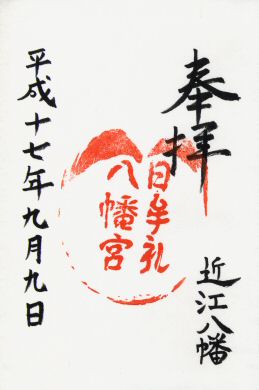 奉拝
近江八幡
日牟礼
八幡宮
平成十七年九月九日